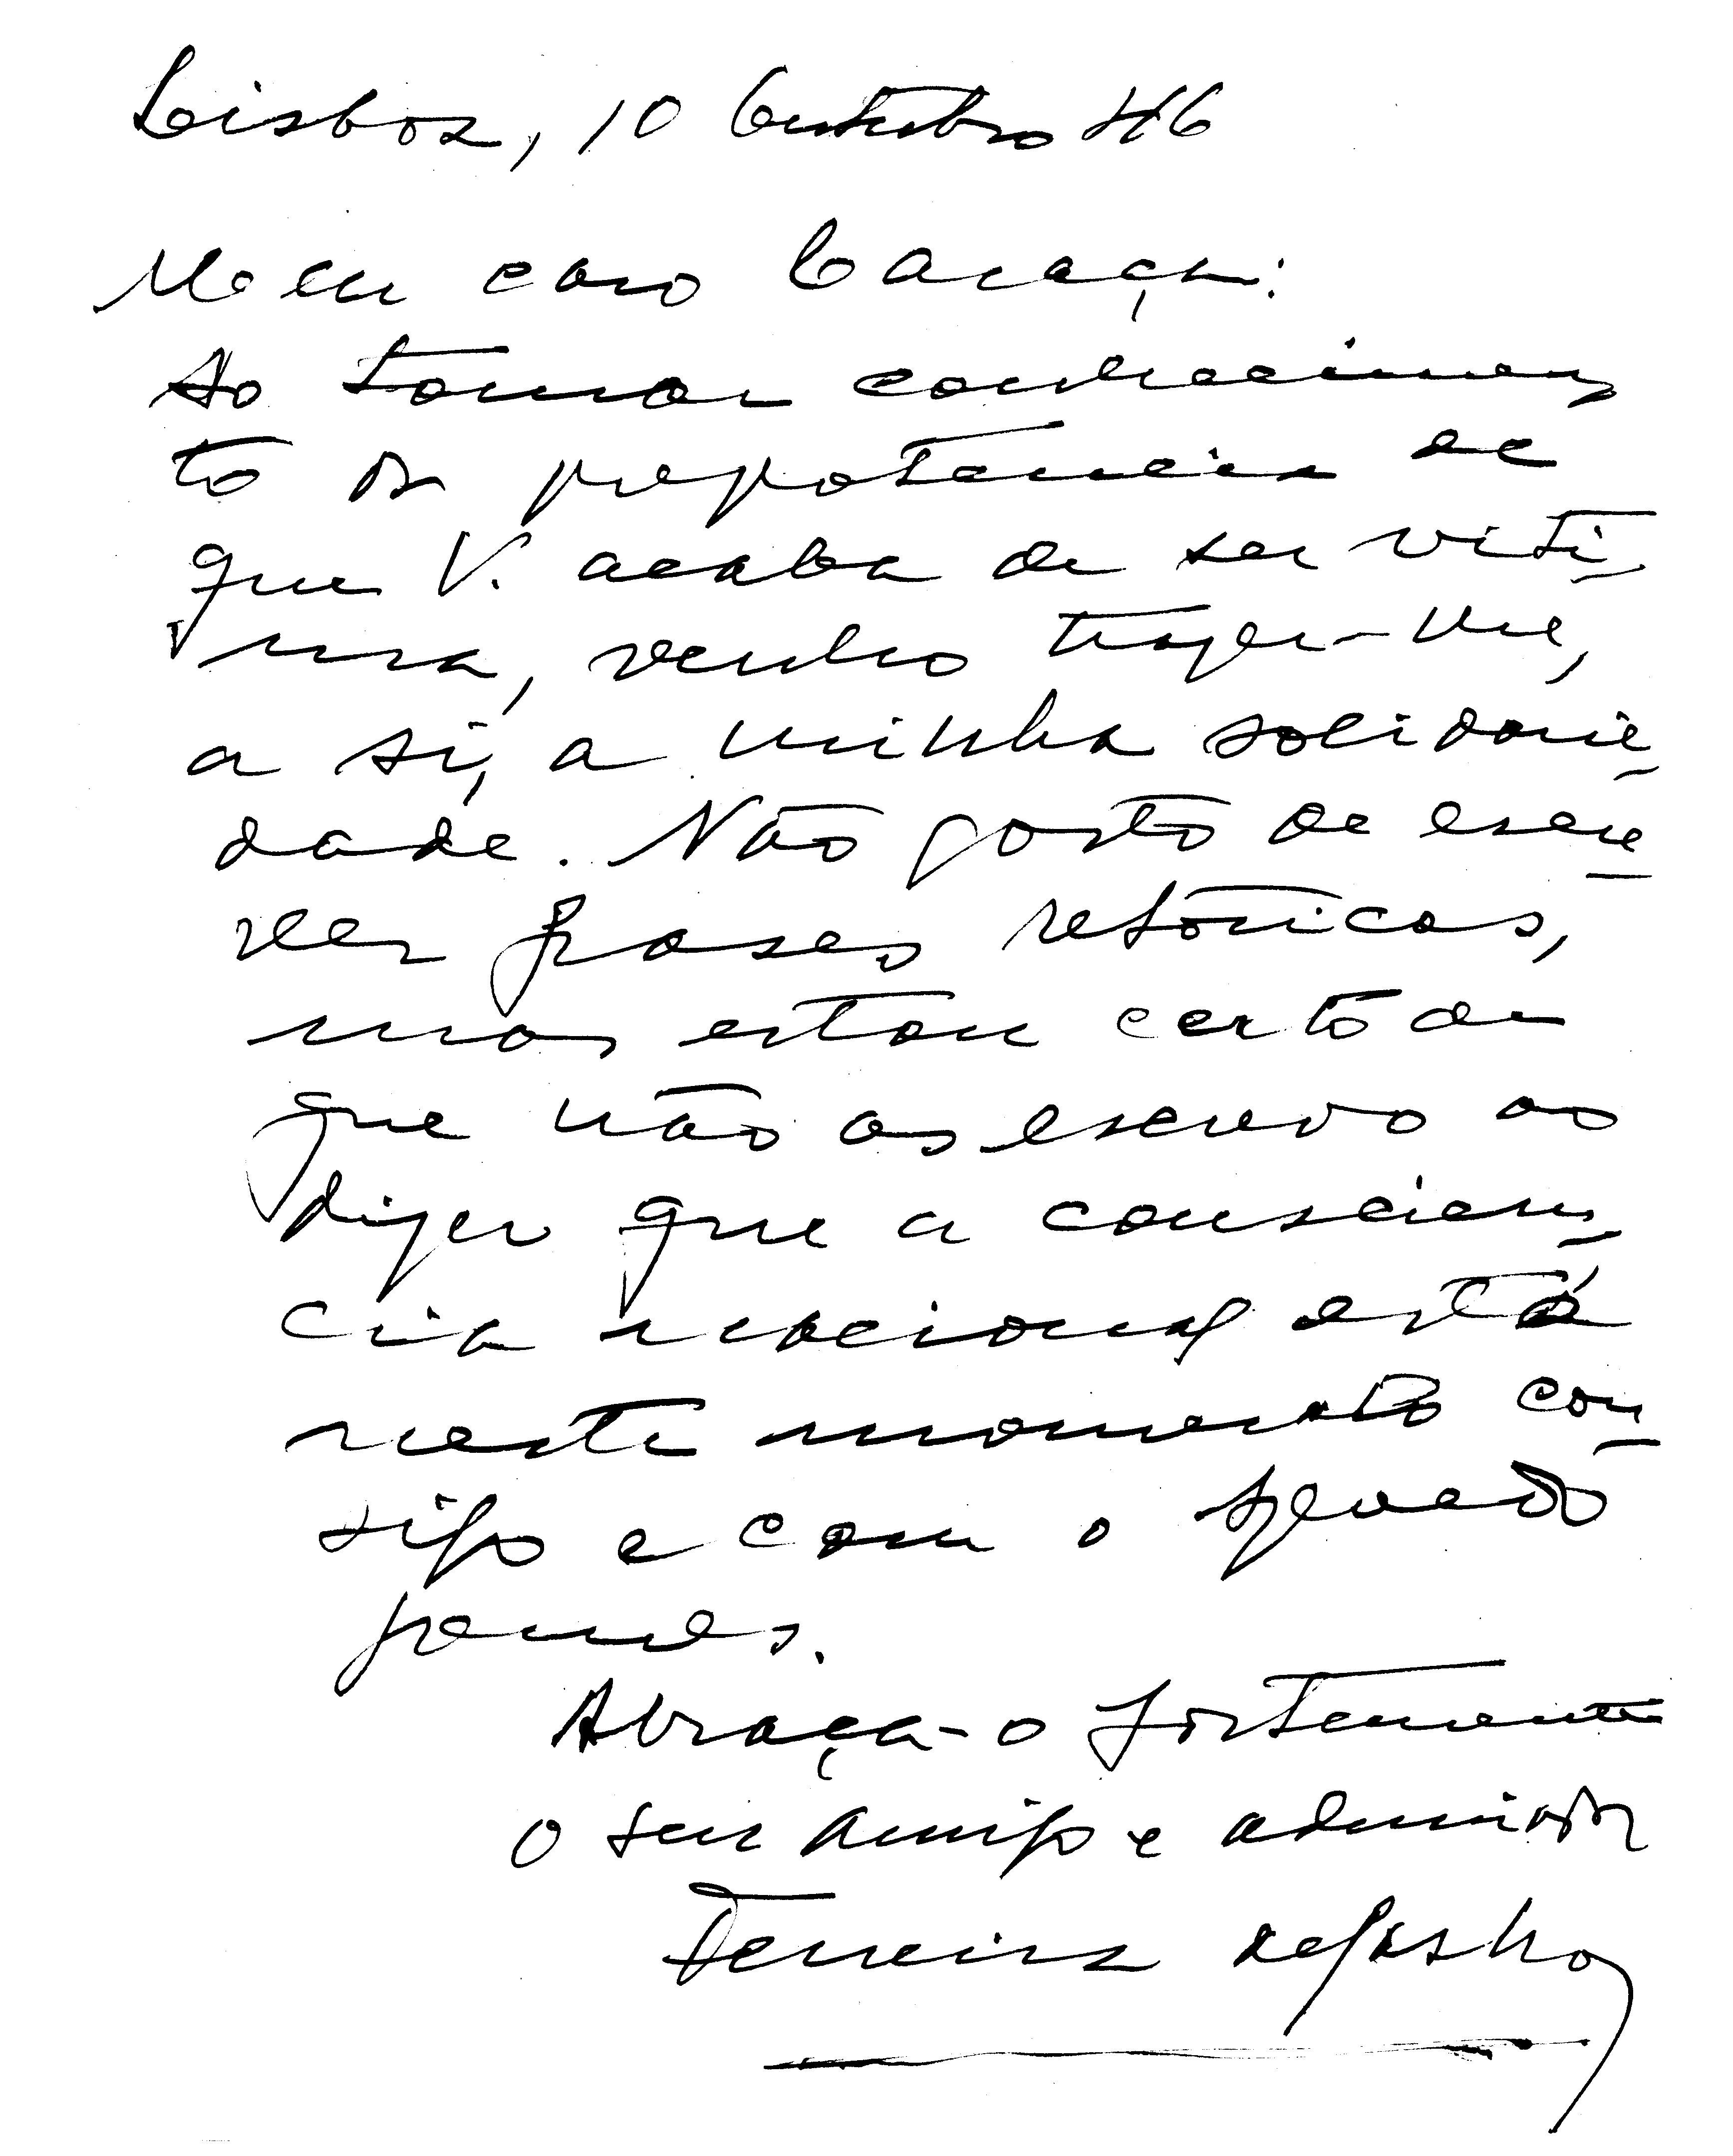 Lisboa, 10 Outubro 46
Meu caro Caraça:
Ao tomar conhecimen-
to da prepotência de
que V. acaba de ser viti-
ma, venho trazer-lhe,
a si, a minha solidarie-
dade. Não gosto de escre-
ver frases retóricas,
mas estou certo de
que não as escrevo ao
dizer que a conscien-
cia nacional está
neste momento con-
sigo e com o Azevedo
Gomes.
Abraça-o fortemente
o seu amigo e admirador
Ferreira de Castro